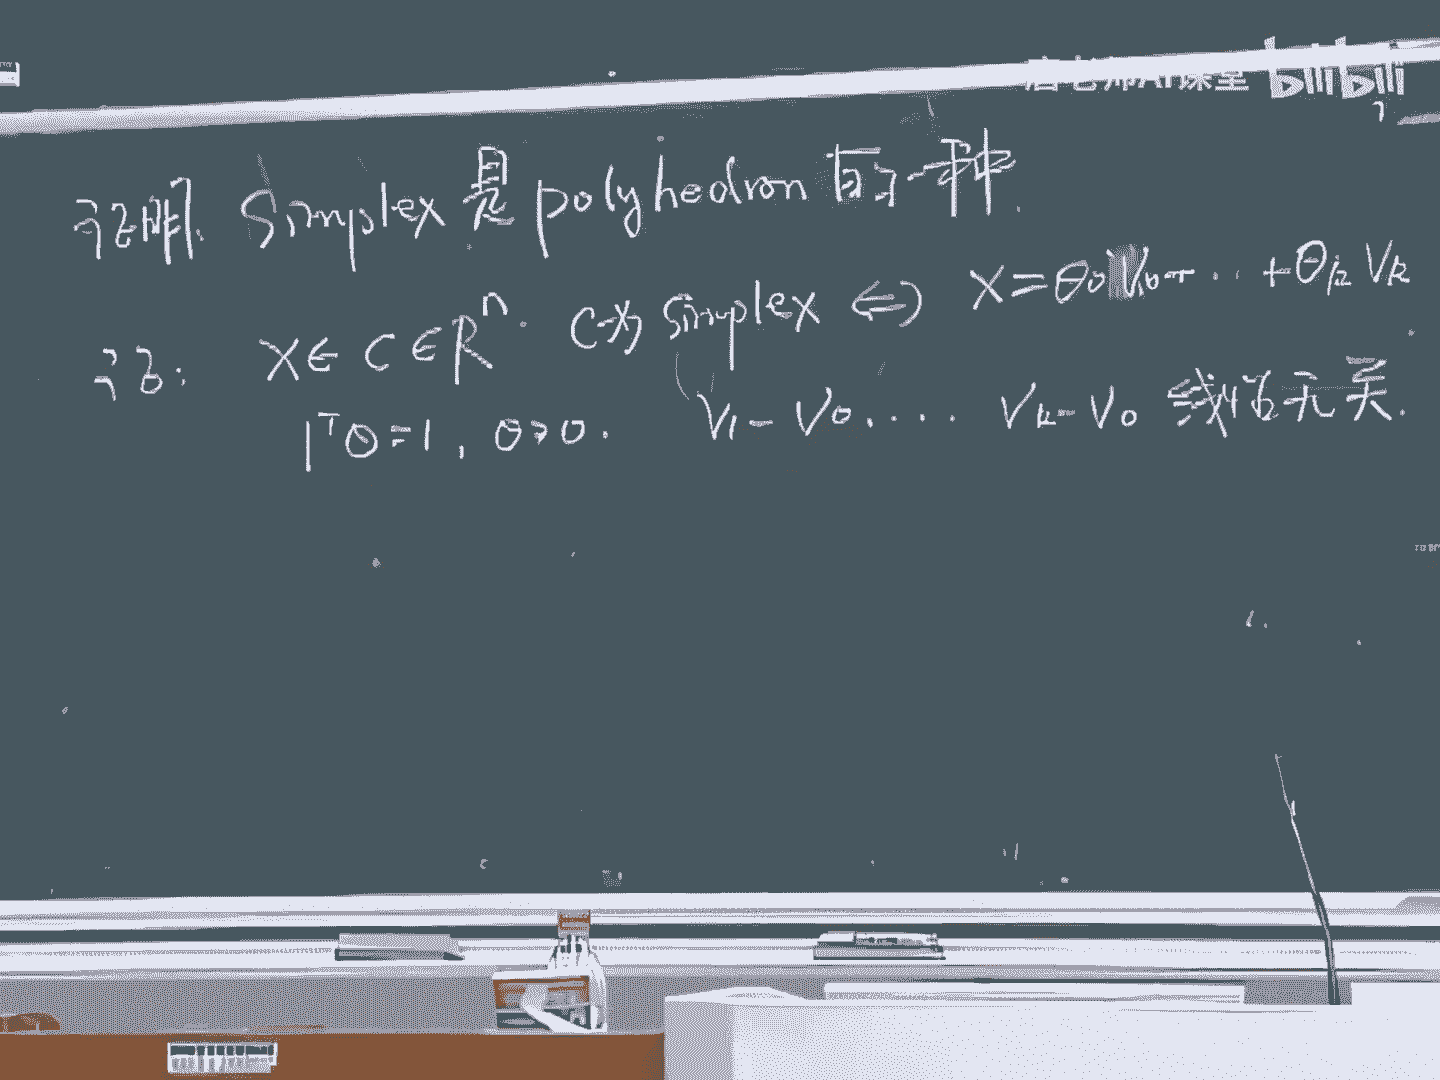 bilibili
证明. Simplex 是 polyhedron 的一种.
证: X ∈ C ∈ R^n. C为 Simplex ⇔ X = θ0 V0 + ... + θk Vk
1^T θ = 1, θ ≽ 0. V1 - V0, .... Vk - V0 线性无关.